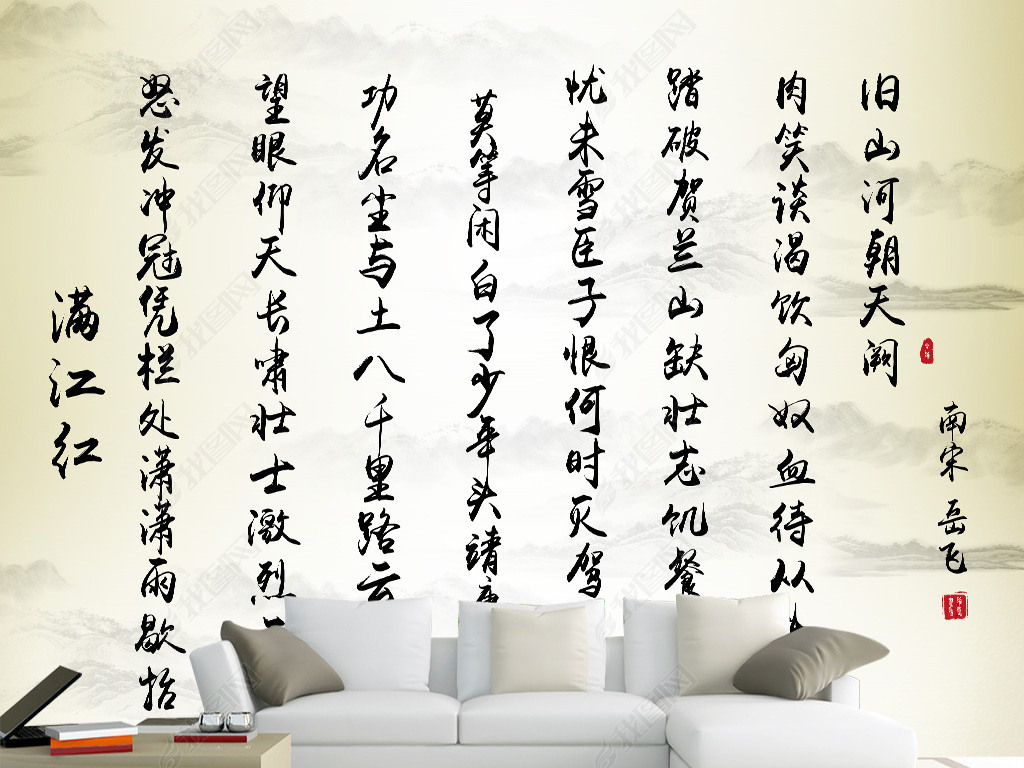 满江红
怒发冲冠凭栏处潇潇雨歇抬
望眼仰天长啸壮士激烈
功名尘与土八千里路云
莫等闲白了少年头靖
忧未雪臣子恨何时灭驾
踏破贺兰山缺壮志饥餐
肉笑谈渴饮匈奴血待从
旧山河朝天阙
南宋 岳飞